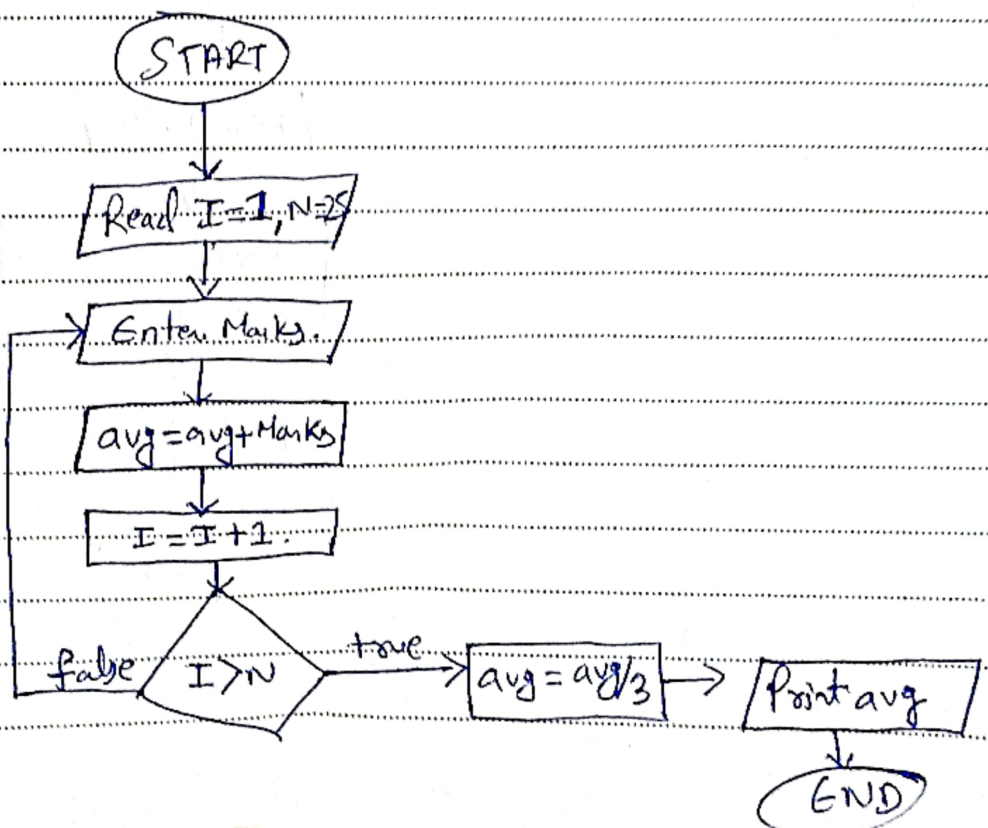 START
Read I=1, N=25
Enter Marks.
avg=avg+Marks
I=I+1.
false
I>N
true
avg=avg/3
Print avg
END